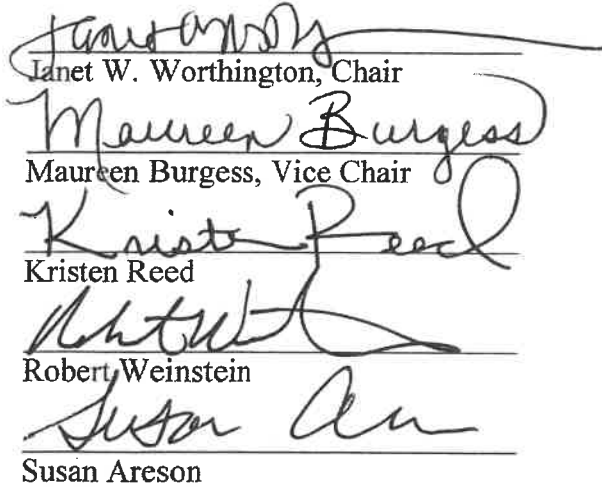 Janet W. Worthington, Chair
Maureen Burgess
Maureen Burgess, Vice Chair
Kristen Reed
Kristen Reed
Robert Weinstein
Susan
Susan Areson